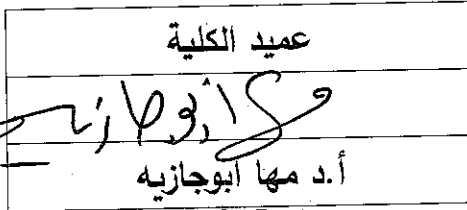 عميد الكلية
أ.د مها ابوجازيه